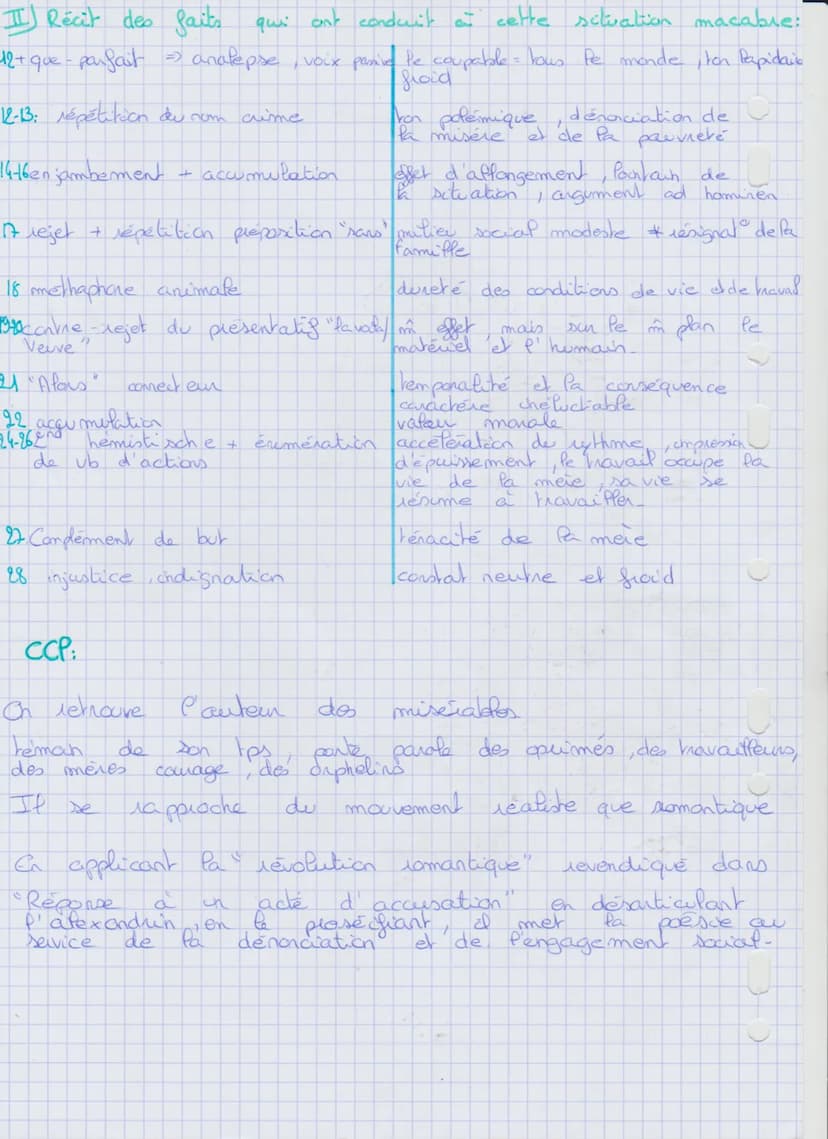 II) Récit des faits qui ont conduit à cette situation macabre:
12+que-parfait => analepse, voix passive
le coupable = tous le monde, ton lapidaire
froid
12-13: répétition du nom crime
ton polémique, dénonciation de
la misère et de la pauvreté
14-16 enjambement + accumulation
effet d'allongement,
la situation, argument ad hominen
17 rejet + répétition préposition "sans"
milieu social modeste * résignat° de la
famille
18 methaphore animale
dureté des conditions de vie et de travail
contre-rejet du présentatif "la voilà/
Veuve"
m̂ effet, mais sur le m̂ plan le
matériel et l'humain.
21 "Alors" connecteur
temporalité et la conséquence
caractère inéluctable
22 accumulation
valeur morale
24-26 2nd hémistische + énumération
de vb d'actions
accélération du rythme, impression
d'épuissement, le travail occupe la
vie de la mère, sa vie se
résume à travailler.
27 Complément de but
ténacité de la mère
28 injustice, indignation
constat neutre et froid
CCP:
On retrouve l'auteur des misérables
témoin de son tps, porte parole des oprimés, des travailleurs,
des mères courage, des orphelins
Il se rapproche du mouvement réaliste que romantique
En applicant la "révolution romantique" revendiqué dans
"Réponse à un acté d'accusation" en désarticulant
l'alexandrin, en le proséifiant, il met la poésie au
service de la dénonciation et de l'engagement social.